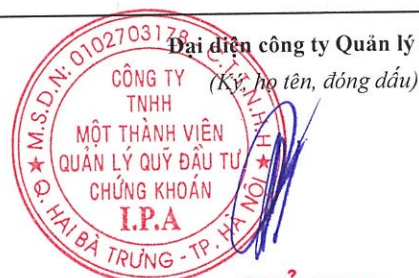 Đại diện công ty Quản lý
(Ký, họ tên, đóng dấu)
M.S.D.N: 0102703178 - C.T.T.N.H.H
CÔNG TY
TNHH
MỘT THÀNH VIÊN
QUẢN LÝ QUỸ ĐẦU TƯ
CHỨNG KHOÁN
I.P.A
★ Q. HAI BÀ TRƯNG - TP. HÀ NỘI ★